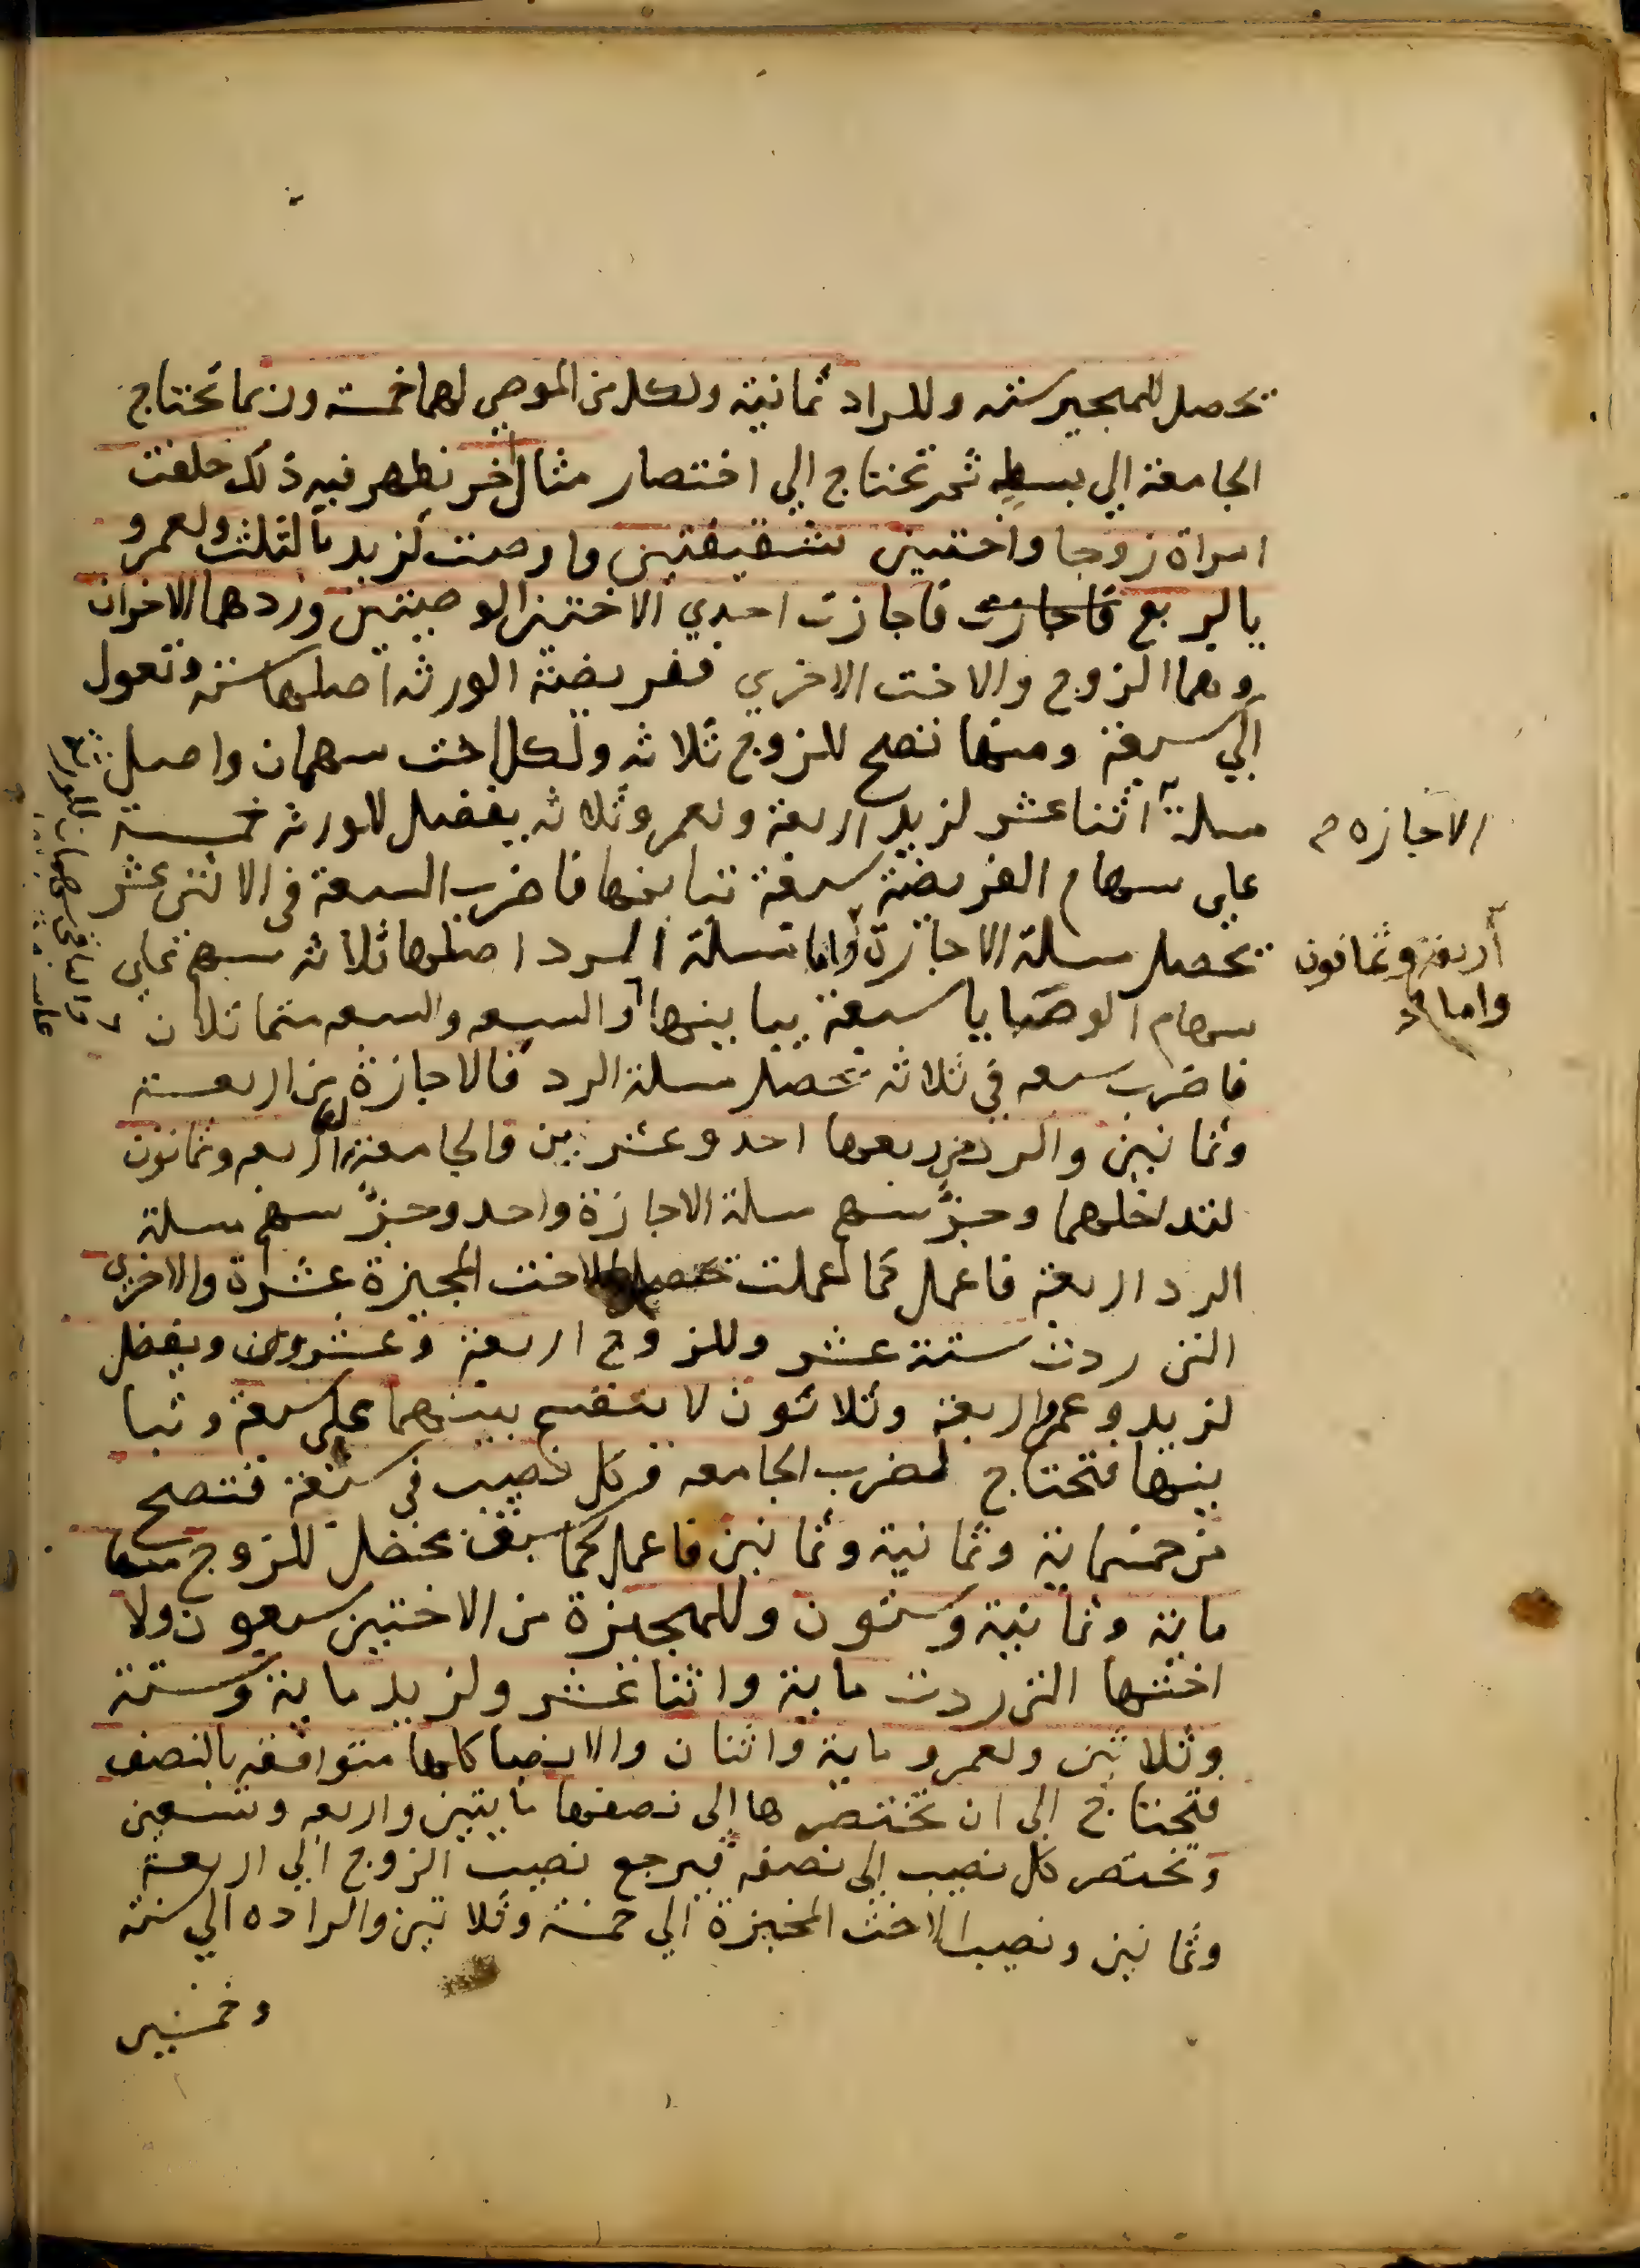 تحصل للمجيز ستة وللراد ثمانية ولكل من الموصي لهما خمسة وربما تحتاج
الجامعة الي بسط ثم تحتاج الي اختصار مثال اخر نظهر فيه ذلك خلفت
امراة زوجا واختين شقيقتين واوصت لزيد بالثلث ولعمرو
بالربع فاجازت فاجازت احدي الاختين الوصيتين وردهما الاخران
وهما الزوج والاخت الاخري ففريضة الورثه اصلها ستة وتعول
الي سبعة ومنها تصح للزوج ثلاثه ولكل اخت سهمان واصل
مسلة اثنا عشر لزيد اربعة ولعمرو ثلاثه يفضل للورثه خمسة
الاجازه
علي سهام الفريضة سبعة تباينها فاضرب السبعة في الاثني عشر
تحصل مسلة الاجازة واما مسلة الرد اصلها ثلاثه سهم علي
أربعة وثمانون
واما
سهام الوصايا سبعة يباينها والسبعه والسبعه متماثلان
فاضرب سبعه في ثلاثه تحصل مسلة الرد فالاجازة من اربعة
وثمانين والرد من ربعها احد وعشرين فالجامعة اربعه وثمانون
لتداخلهما وجزء سهم مسلة الاجازة واحد وجزء سهم مسلة
الرد اربعة فاعمل كما عملت تحصل للاخت المجيزة عشرة والاخري
التي ردت ستة عشر وللزوج اربعة وعشرون ويفضل
لزيد وعمرو اربعة وثلاثون لا ينقسم بينهما علي سبعة وتبا
ينها فتحتاج لضرب الجامعه وكل نصيب في سبعة فتصح
من خمسماية وثمانية وثمانين فاعمل كما سبق يحصل للزوج منها
ماية وثمانية وستون وللمجيزة من الاختين سبعون ولا
اختها التي ردت ماية واثنا عشر ولزيد ماية وستة
وثلاثين ولعمرو ماية واثنان والانصبا كلها متوافقه بالنصف
فتحتاج الي ان تختصرها الي نصفها مايتين واربعه وتسعين
وتختصر كل نصيب الي نصفه فيرجع نصيب الزوج الي اربعة
وثمانين ونصيب الاخت المجيزة الي خمسة وثلاثين والراده الي ستة
وخمسين